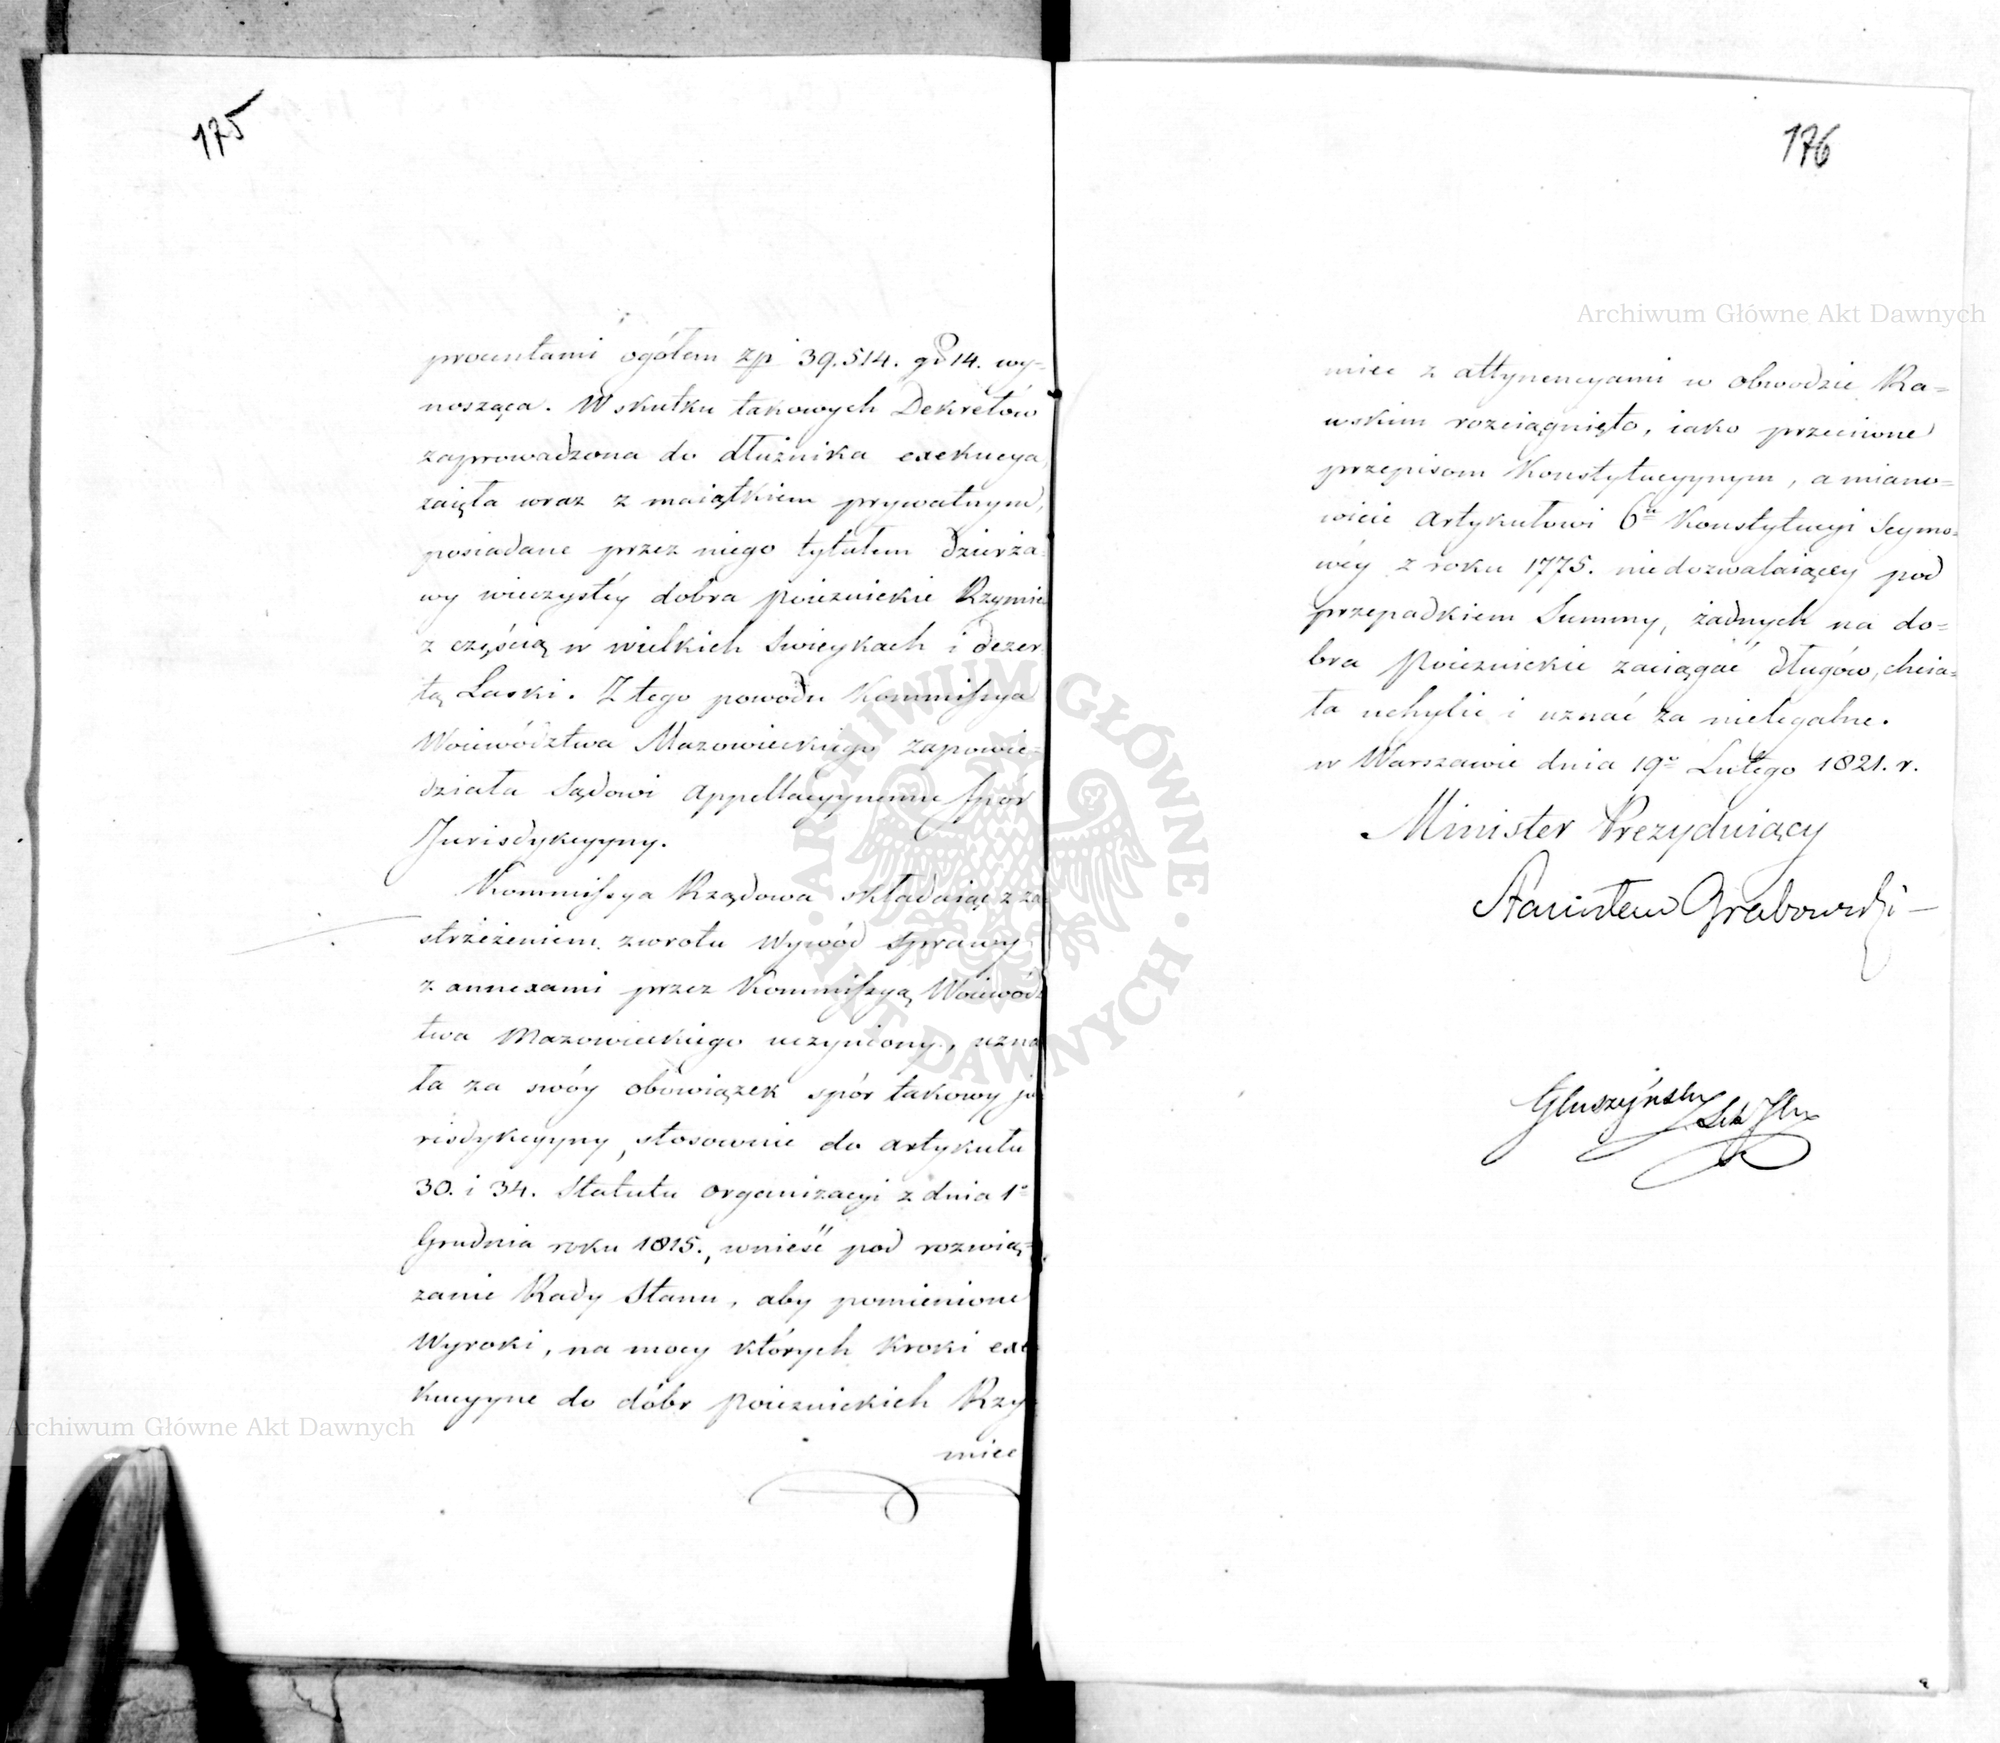 175
procentami ogółem zł 39.514. gr 14. wy=
nosząca. W skutku takowych Dekretów
zaprowadzona do dłużnika exekucya,
zaięła wraz z maiątkiem prywatnym,
posiadane przez niego tytułem dzierża=
wy wieczystéy dobra Poiezuickie Rzymiec
z częścią w wielkich Swieykach i dezer=
tą Laski. Z tego powodu Kommissya
Woiewództwa Mazowieckiego zapowie=
działa Sądowi Appellacyynemu spór
Jurisdykcyyny.
Kommissya Rządowa składaiąc z za=
strzeżeniem zwrotu Wywód sprawy
z annexami przez Kommissyą Woiewódz
twa Mazowieckiego uczyniony, uzna
ła za swóy obowiązek spór takowy ju
risdykcyyny, stosownie do artykułu
30. i 34. Statutu organizacyi z dnia 1o
Grudnia roku 1815., wnieść pod rozwią=
zanie Rady Stanu, aby pomienione
Wyroki, na mocy których kroki exe
kucyyne do dóbr Poiezuickich Rzy=
miec
176
miec z attynencyami w obwodzie Ra=
wskim rozciągnięto, iako przeciwne
przepisom Konstytucyynym, a miano=
wicie Artykułowi 6u Konstytucyi Seymo=
wéy z roku 1775. niedozwalaiącey pod
przepadkiem Summy, żadnych na do=
bra Poiezuickie zaciągać długów, chcia=
ła uchylić i uznać za nielegalne.
w Warszawie dnia 19o Lutego 1821. r.
Minister Prezyduiący
Stanisław Grabowski
Głuszyński
Archiwum Główne Akt Dawnych
Archiwum Główne Akt Dawnych
ARCHIWUM GŁÓWNE AKT DAWNYCH